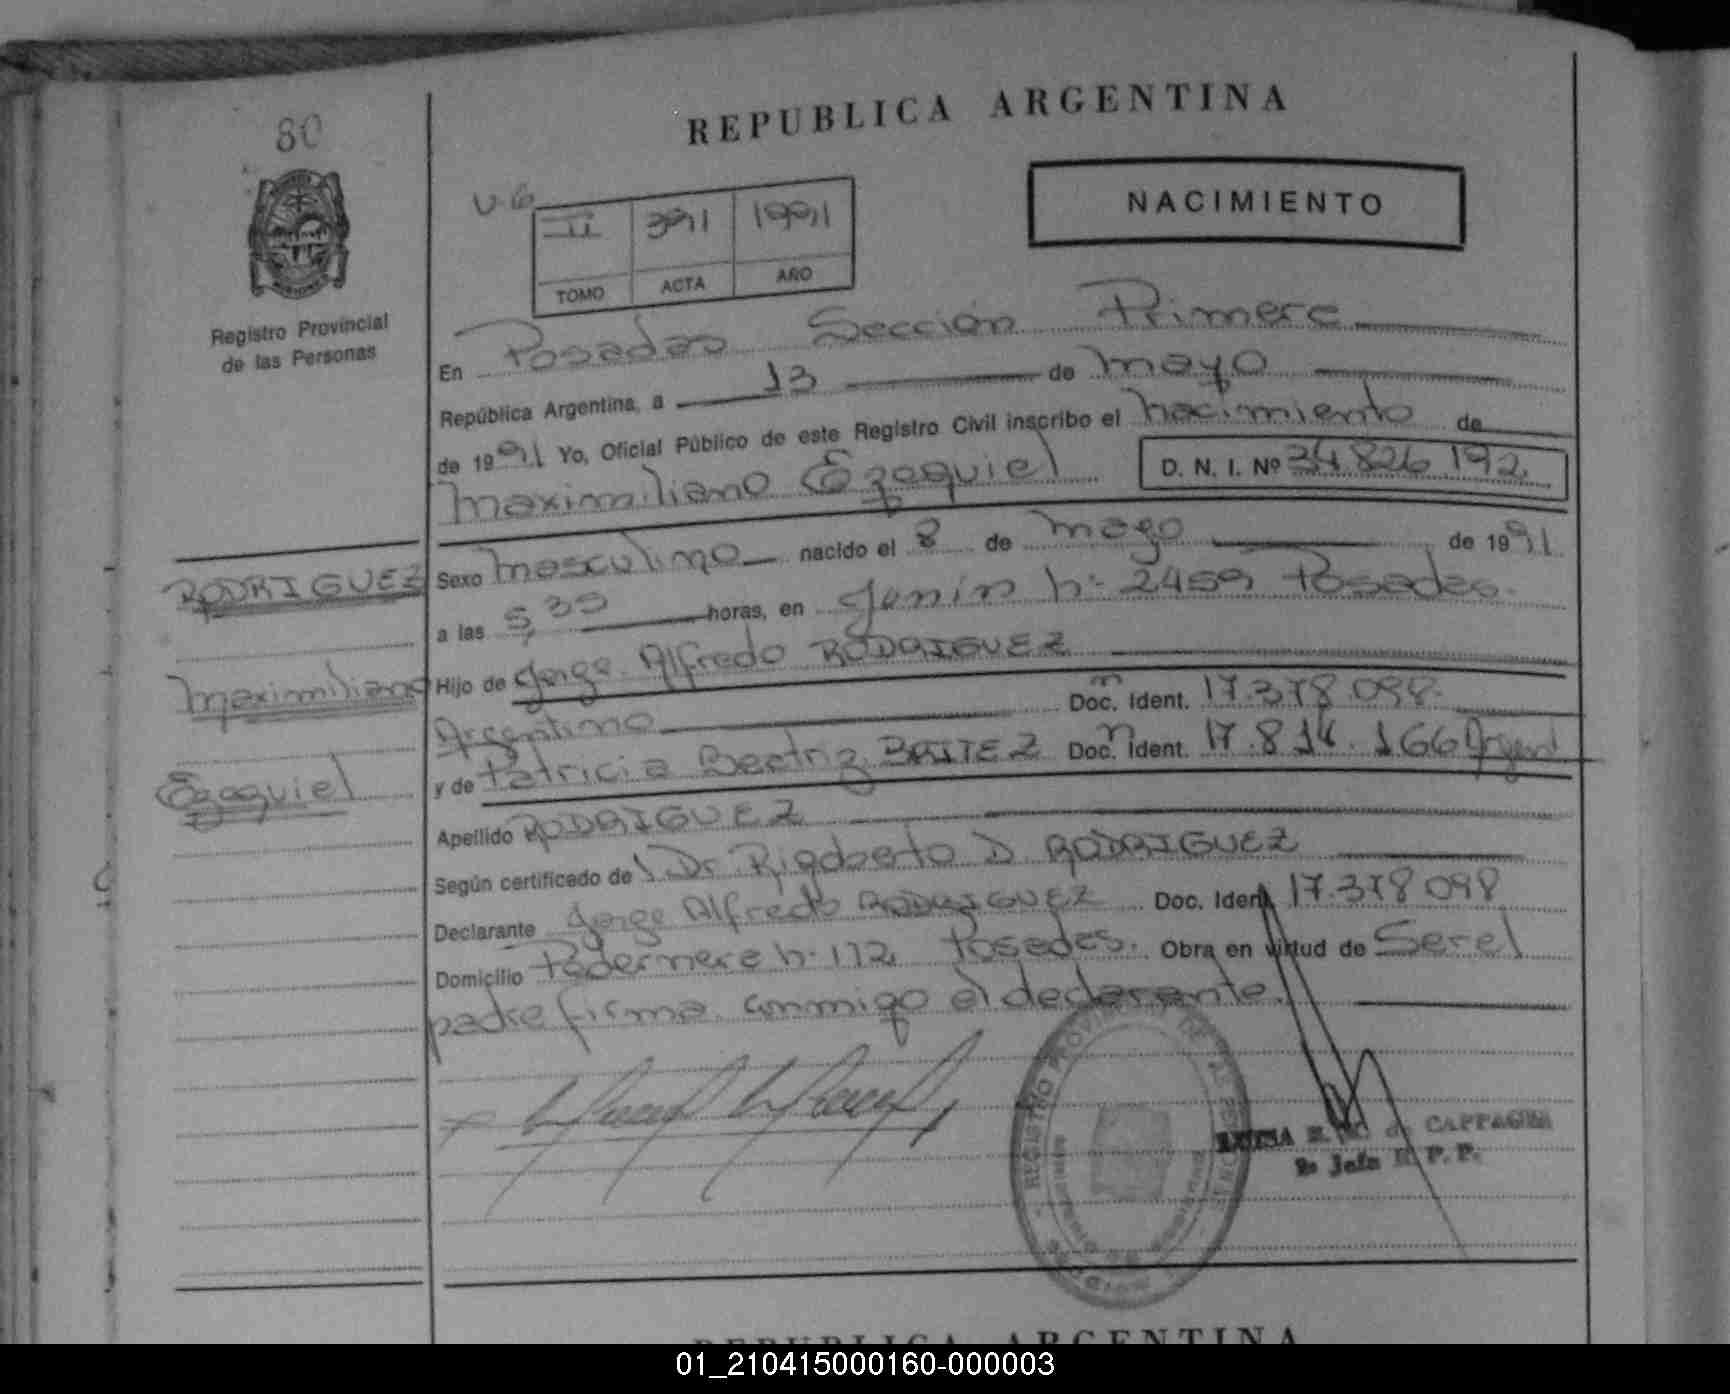 80
REPUBLICA ARGENTINA
NACIMIENTO
U-6
II 391 1991
TOMO ACTA AÑO
Registro Provincial
de las Personas
En Posadas Sección Primera
República Argentina, a 13 de mayo
de 1991 Yo, Oficial Público de este Registro Civil inscribo el nacimiento de
Maximiliano Ezequiel D. N. I. Nº 34 826 192
RODRIGUEZ
Maximiliano
Ezequiel
Sexo masculino nacido el 8 de mayo de 1991
a las 5,35 horas, en Junín n: 2459 Posadas.
Hijo de Jorge Alfredo RODRIGUEZ
Argentino Doc. Ident. 17.378.098
y de Patricia Beatriz BRITEZ Doc. Ident. 17.814.166 Argent
Apellido RODRIGUEZ
Según certificado del Dr. Rigoberto D RODRIGUEZ
Declarante Jorge Alfredo RODRIGUEZ Doc. Ident 17.378 098
Domicilio Padernera n. 112 Posadas. Obra en virtud de Ser el
padre firma conmigo el declarante.
REGISTRO PROVINCIAL DE LAS PERSONAS
de CAPPAGINA
2o Jefa R. P. P.
REPUBLICA ARGENTINA
01_210415000160-000003